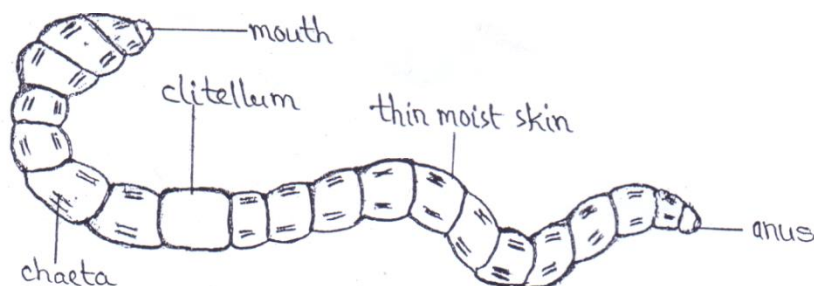 mouth
clitellum
thin moist skin
anus
chaeta